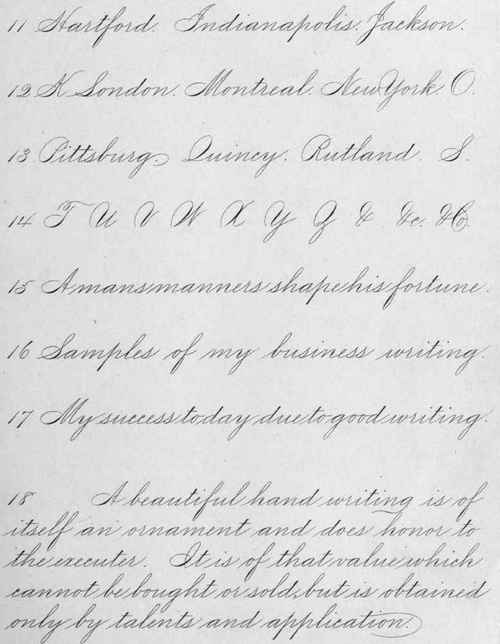 11 Hartford. Indianapolis. Jackson.
12 K London. Montreal. New York O.
13 Pittsburg. Quincy. Rutland. S.
14 T U V W X Y Z & &c. &Co
15 A mans manners shape his fortune.
16 Samples of my business writing.
17 My success today due to good writing.
18 A beautiful hand writing is of
itself an ornament and does honor to
the executer. It is of that value which
cannot be bought or sold, but is obtained
only by talents and application.